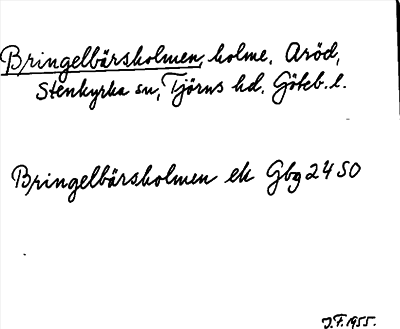 Bringelbärsholmen, holme, Aröd,
Stenkyrka sn, Tjörns hd. Göteb. l.
Bringelbärsholmen ek Gbg 24 SO
J.F. 1955.